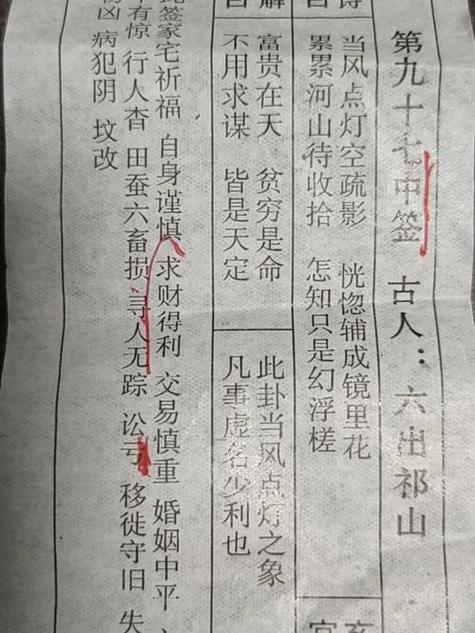 第九十七中签 古人：六出祁山
诗
曰
当风点灯空疏影 恍惚辅成镜里花
累累河山待收拾 怎知只是幻浮槎
解
曰
富贵在天 贫穷是命
不用求谋 皆是天定
此卦当风点灯之象
凡事虚名少利也
签家宅祈福 自身谨慎 求财得利 交易慎重 婚姻中平
有惊 行人杳 田蚕六畜损 寻人无踪 讼亏 移徙守旧 失
凶 病犯阴 坟改